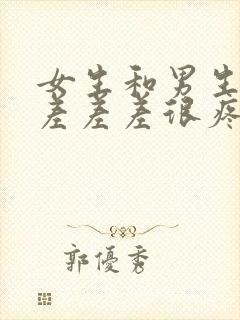 女生和男生
差差差很疼
郭優秀